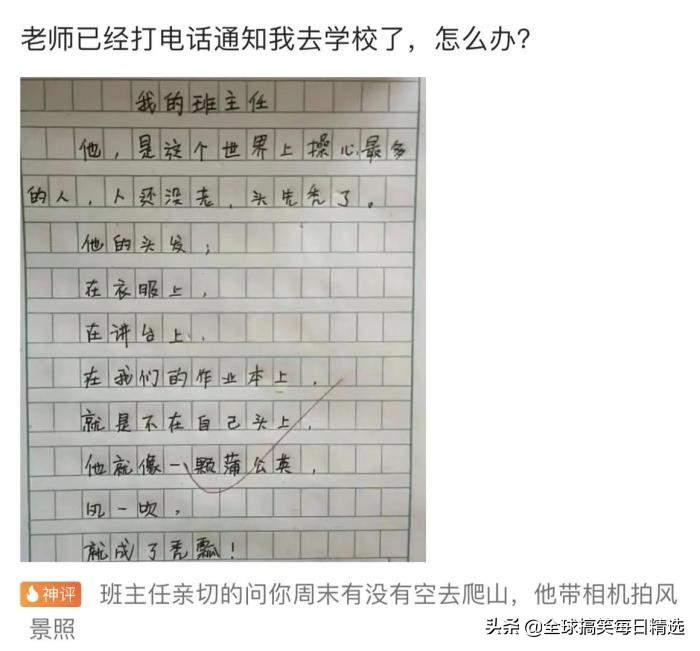 老师已经打电话通知我去学校了，怎么办？
我的班主任
他，是这个世界上操心最多
的人，人还没老，头先秃了。
他的头发；
在衣服上，
在讲台上，
在我们的作业本上，
就是不在自己头上，
他就像一颗蒲公英，
风一吹，
就成了秃瓢！
神评 班主任亲切的问你周末有没有空去爬山，他带相机拍风
景照
头条 @全球搞笑每日精选